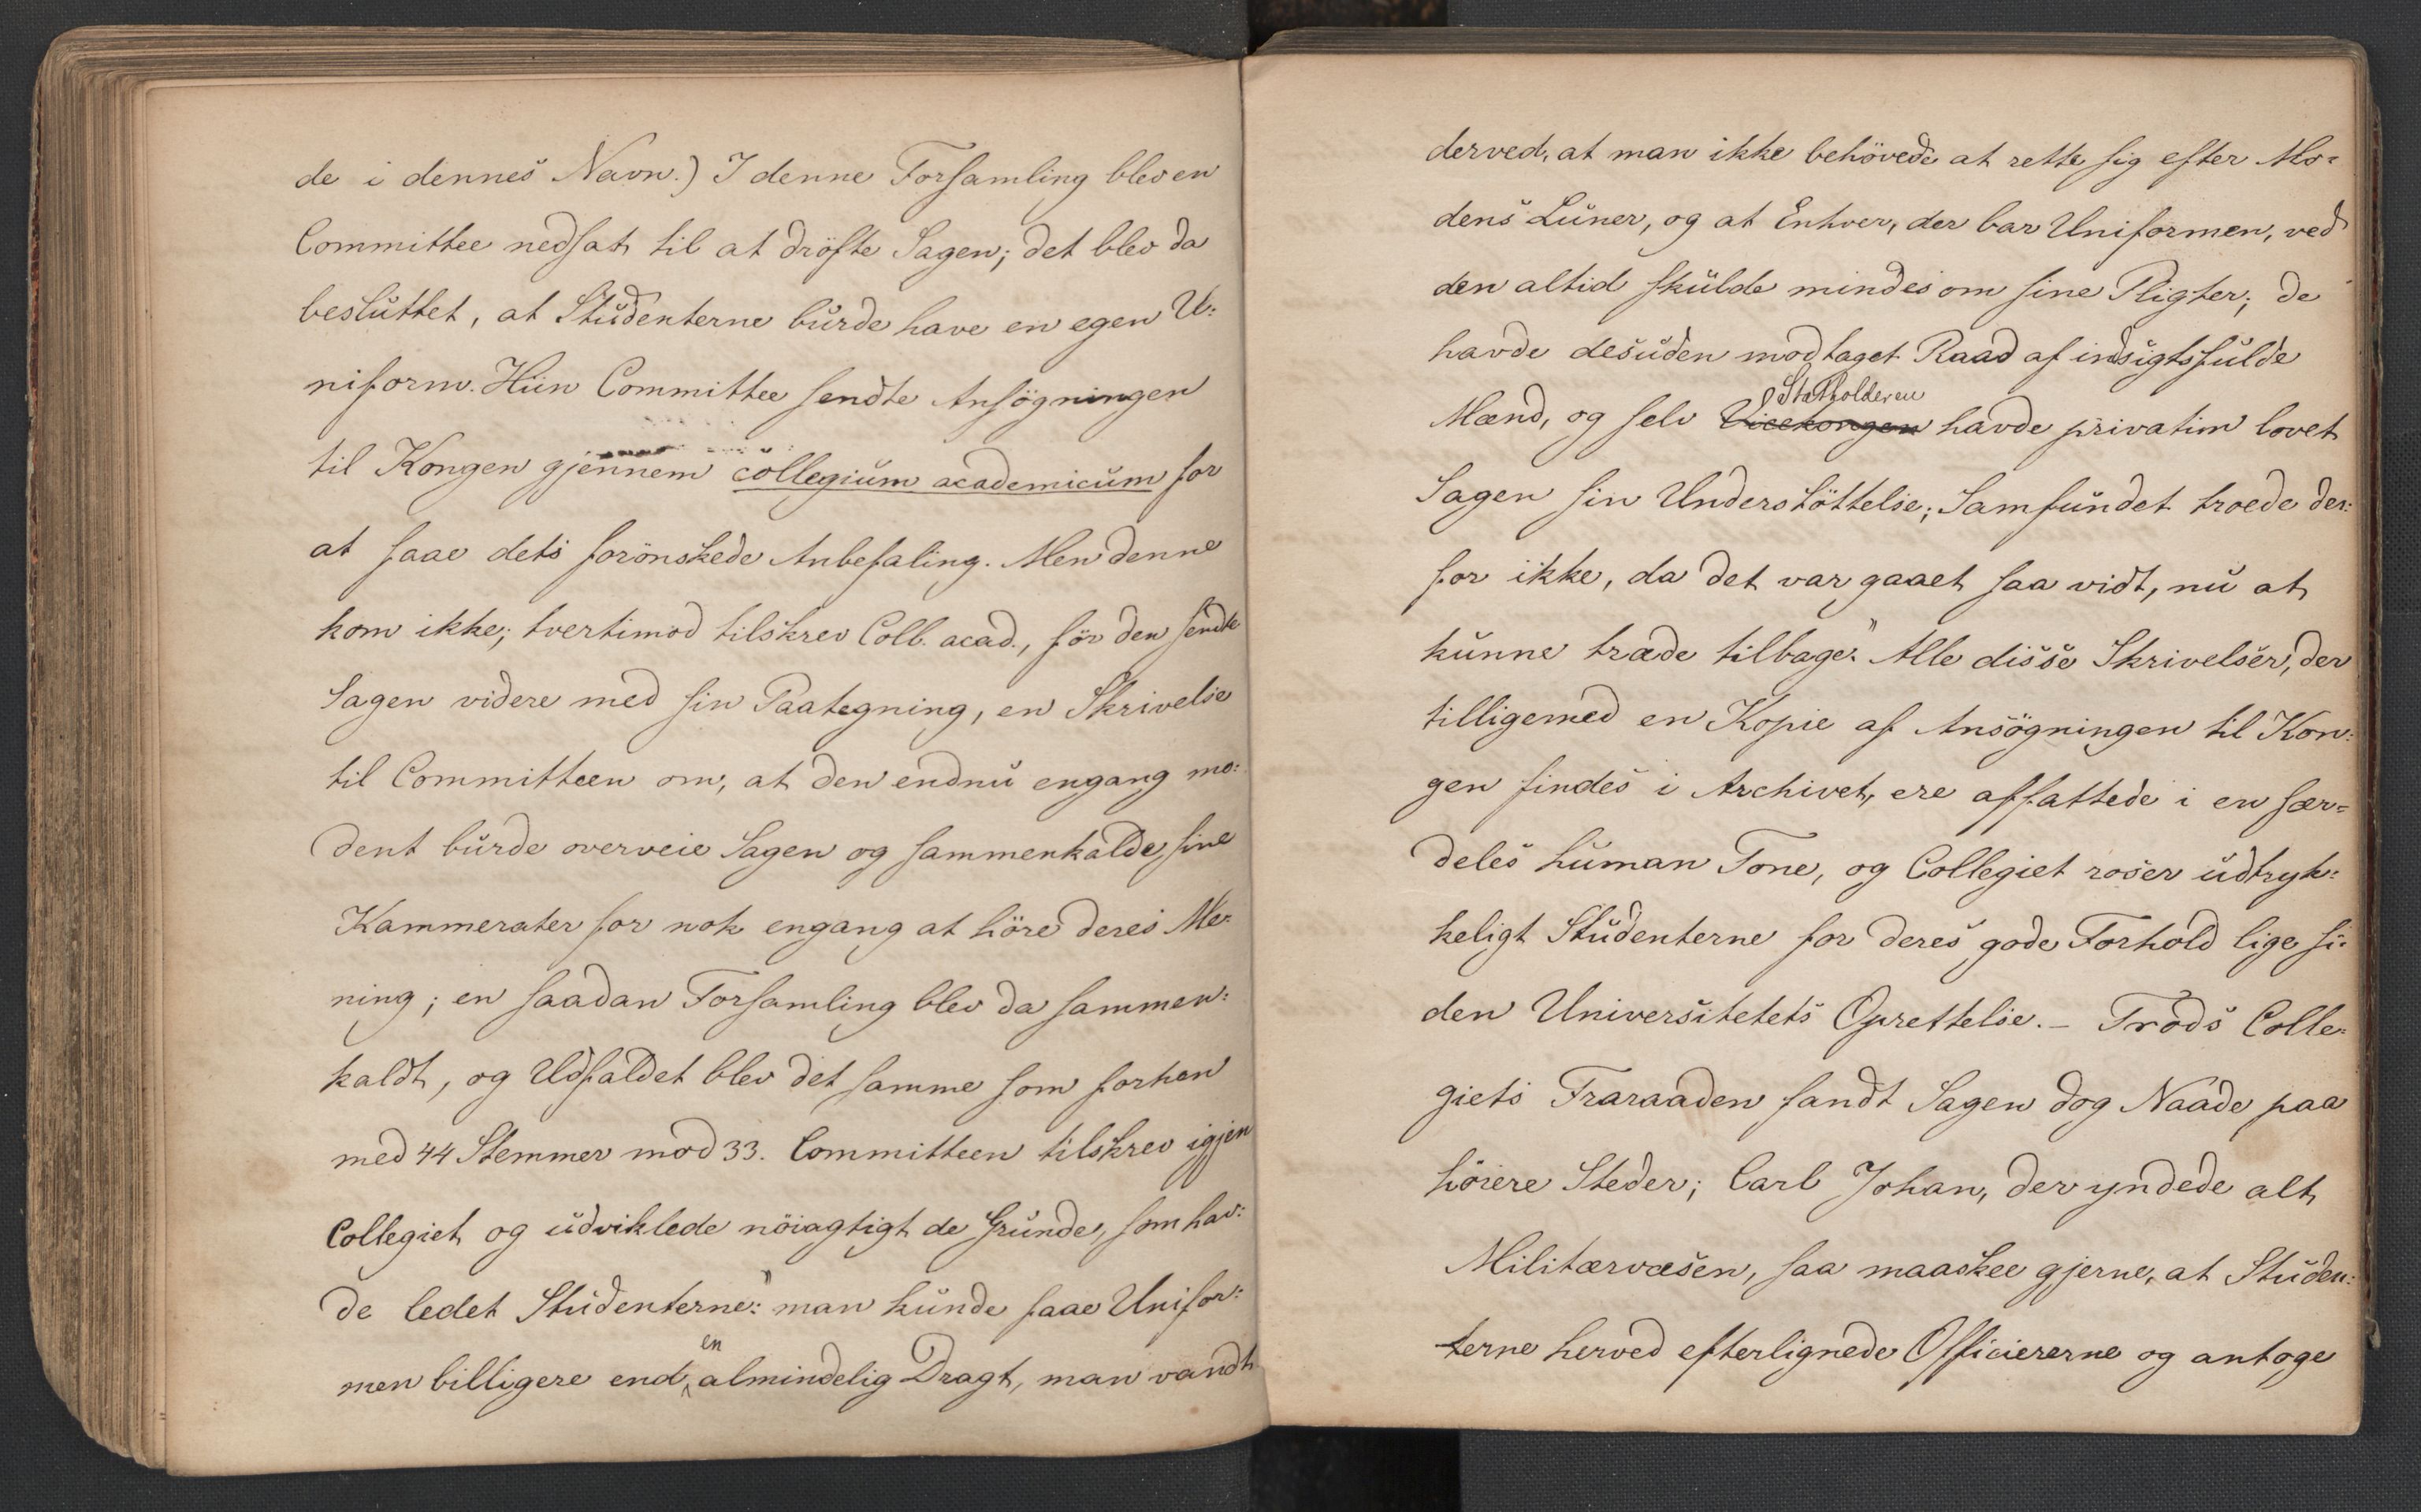 de i dennes Navn.) I denne Forsamling blev en
Committee nedsat til at dröfte Sagen; det blev da
besluttet, at Studenterne burde have en egen U:
niform. Hiin Committee sendte Ansögningen
til Kongen gjennem collegium academicum for
at faae dets forönskede Anbefaling. Men denne
kom ikke; tvertimod tilskrev Coll. acad., för den sendte
Sagen videre med sin Paategning, en Skrivelse
til Committeen om, at den endnu engang mo:
dent burde overveie Sagen og sammenkalde sine
Kammerater for nok engang at höre deres Me:
ning; en saadan Forsamling blev da sammen:
kaldt, og Udfaldet blev det samme som forhen
med 44 Stemmer mod 33. Committeen tilskrev igjen
Collegiet og udviklede nöiagtigt de Grunde, som hav:
de ledet Studenterne: "man kunde faae Unifor:
en
men billigere end almindelig Dragt, man vandt
derved, at man ikke behövede at rette sig efter Mo=
dens Luner, og at Enhver, der bar Uniformen, ved
den altid skulde mindes om sine Pligter; de
havde desuden modtaget Raad af indsigtsfulde
Statholderen
Mænd, og selv Vicekongen havde privatim lovet
Sagen sin Understöttelse; Samfundet troede der:
for ikke, da det var gaaet saa vidt, nu at
kunne træde tilbage." Alle disse Skrivelser, der
tilligemed en Kopie af Ansögningen til Kon:
gen findes i Archivet, ere affattede i en sær=
deles human Tone, og Collegiet roser udtryk:
keligt Studenterne for deres gode Forhold lige si:
den Universitetets Oprettelse. – Trods Colle:
giets Fraraaden fandt Sagen dog Naade paa
höiere Steder; Carl Johan, der yndede alt
Militærvæsen, saa maaskee gjerne, at Studen:
terne herved efterlignede Officiererne og antoge